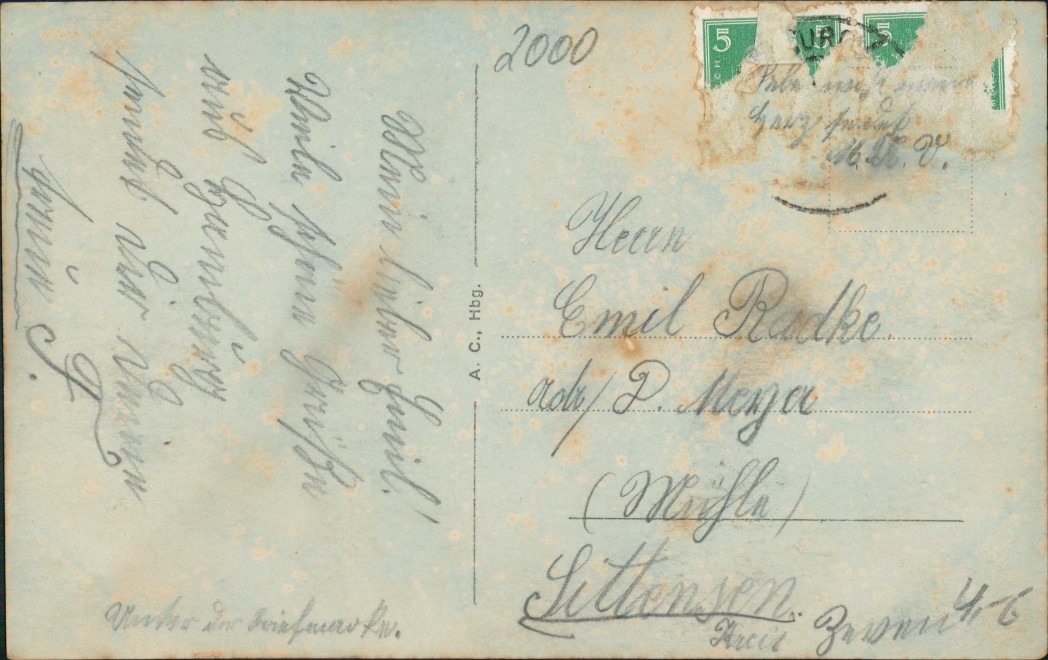 Mein lieber Emil!
Viele schöne Grüße
aus Hamburg
sendet Dir Deine
Unter der Briefmarke.
A. C., Hbg.
2000
5
5
5
M. D. V.
Herrn
Emil Radke.
adr/ P. Meyer
(Mühle)
Sittensen.
Kreis Zeven
4-6